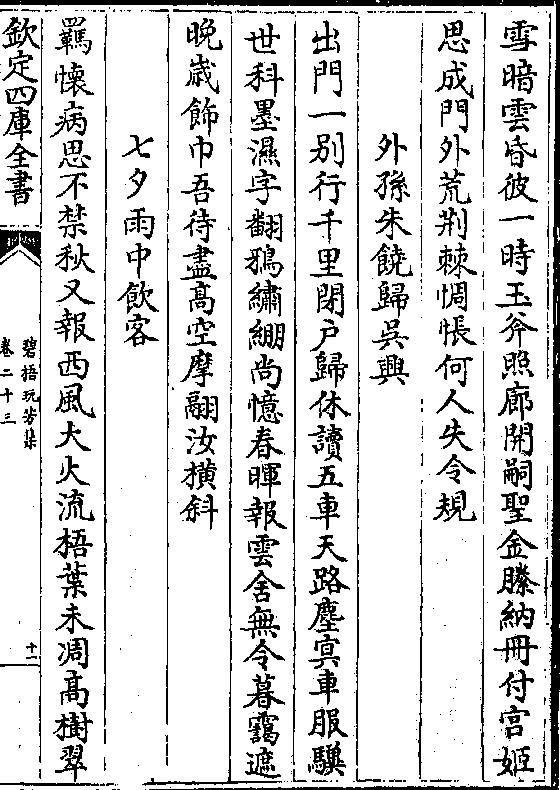 雪暗雲昏彼一時玉斧照廊開嗣聖金縢納冊付宮姬
思成門外荒荆棘惆悵何人失令規
外孫朱饒歸吳興
出門一別行千里閉户歸休讀五車天路塵冥車服驥
世科墨濕字翻鴉繡綳尚憶春暉報雲舍無令暮靄遮
晚嵗飾巾吾待盡髙空摩翮汝横斜
七夕雨中飲客
羈懷病思不禁秋又報西風大火流梧葉未凋髙樹翠
欽定四庫全書
碧梧玩芳集
卷二十三
十一